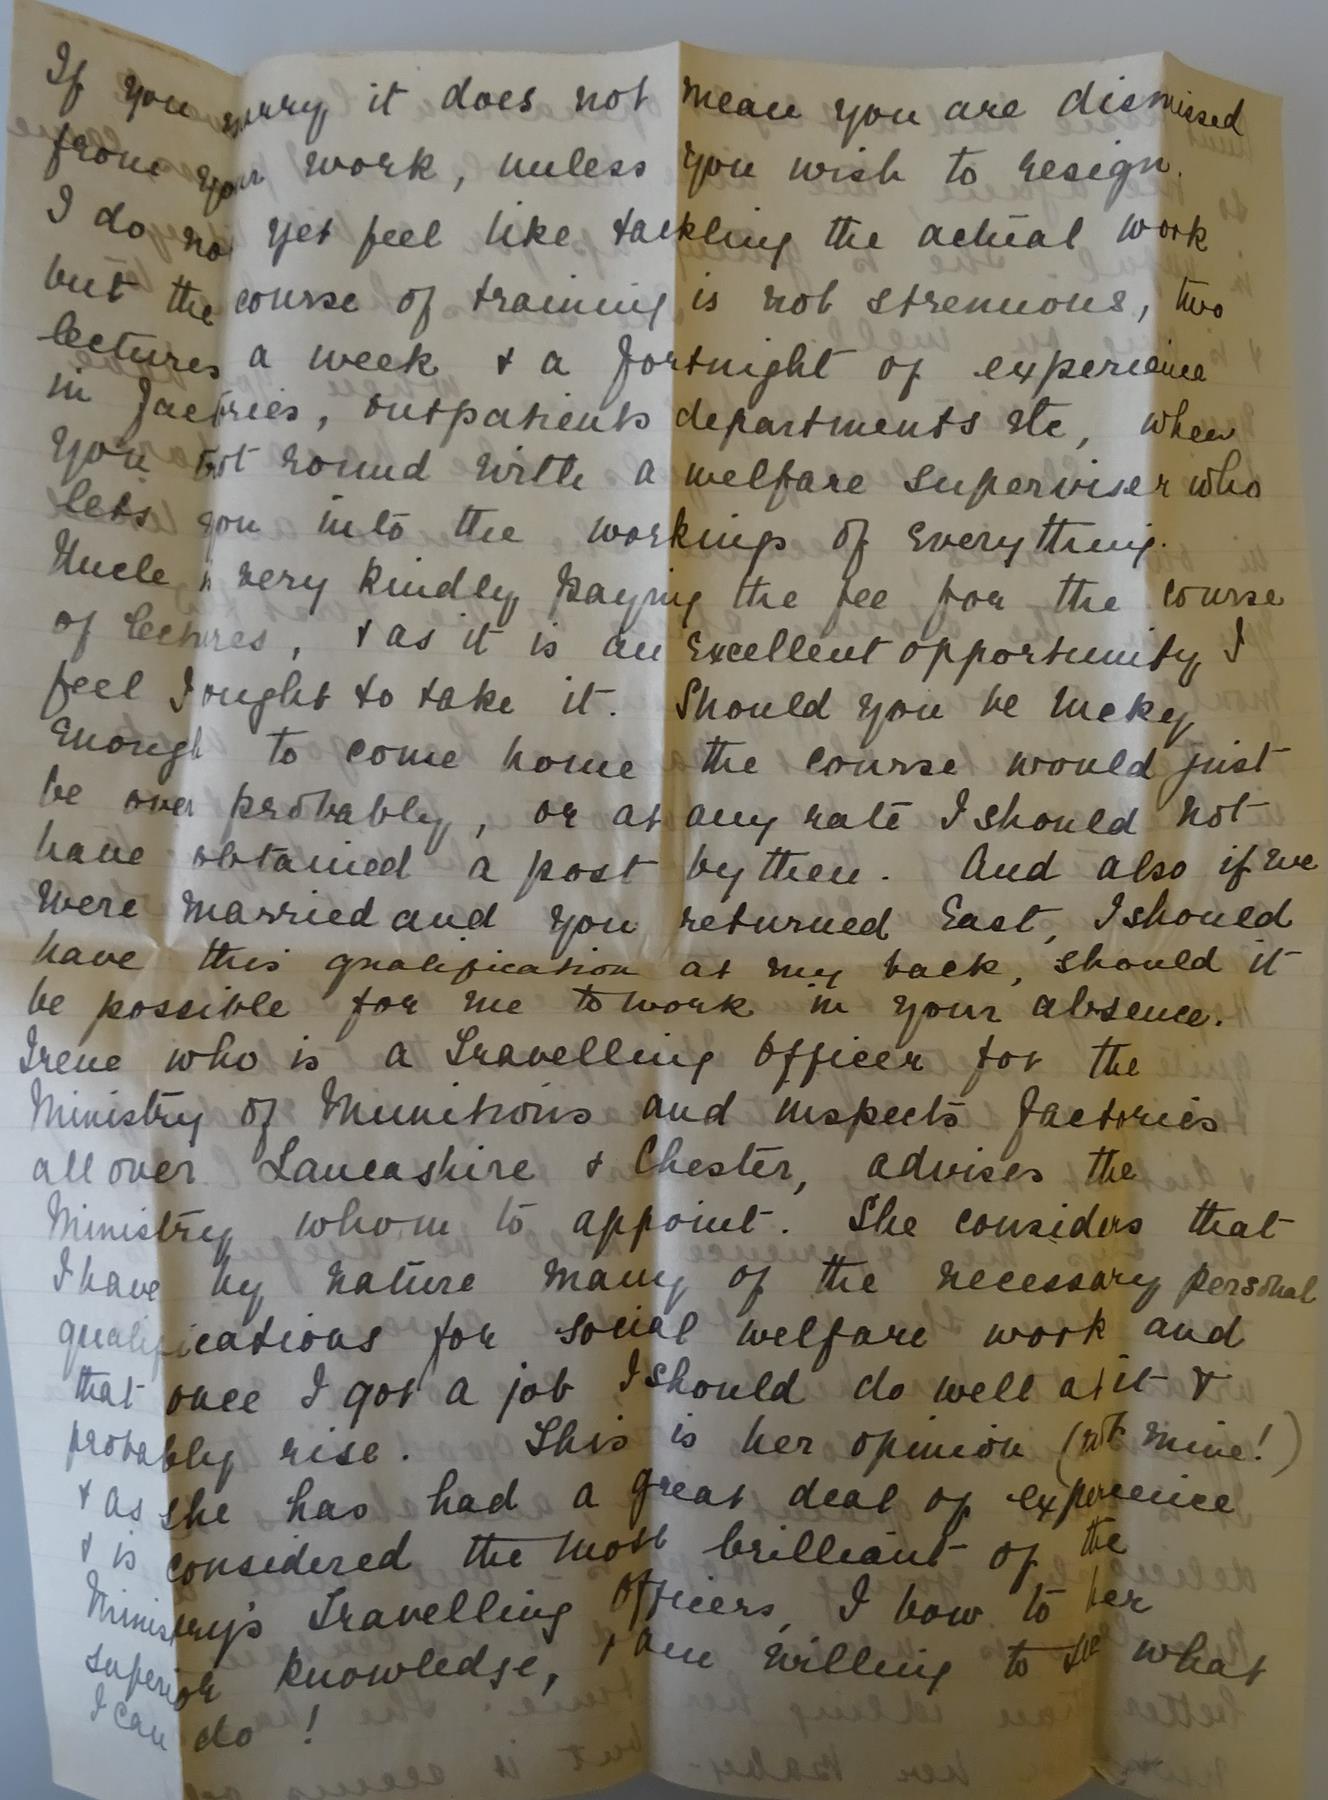 If you marry it does not mean you are dismissed
from your work, unless you wish to resign.
I do not yet feel like tackling the actual work
but the course of training is not strenuous, two
lectures a week & a fortnight of experience
in factories, outpatients departments etc, when
you trot round with a welfare superviser who
lets you into the workings of everything.
Uncle is very kindly paying the fee for the course
of lectures, & as it is an excellent opportunity I
feel I ought to take it. Should you be lucky
enough to come home the course would just
be over probably, or at any rate I should not
have obtained a post by then. And also if we
were married and you returned East, I should
have this qualification at my back, should it
be possible for me to work in your absence.
Irene who is a Travelling Officer for the
Ministry of Munitions and inspects factories
all over Lancashire & Chester, advises the
Ministry whom to appoint. She considers that
I have by nature many of the necessary personal
qualifications for social welfare work and
that once I got a job, I should do well at it &
probably rise. This is her opinion (not mine!)
& as she has had a great deal of experience
& is considered the most brilliant of the
Ministry's Travelling Officers, I bow to her
superior knowledge, & am willing to see what
I can do!